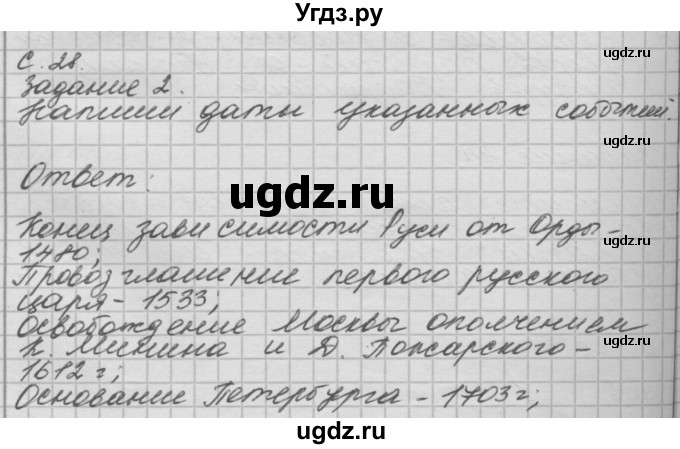 Угдз.ру
С. 28.
ugdz.ru
Задание 2.
Напиши даты указанных событий.
ugdz.ru
Ответ:
ugdz.ru
Конец зависимости Руси от Орды -
1480;
Провозглашение первого русского
царя - 1533;
ugdz.ru
Освобождение Москвы ополчением
К. Минина и Д. Пожарского -
1612 г;
ugdz.ru
Основание Петербурга - 1703г;
ugdz.ru